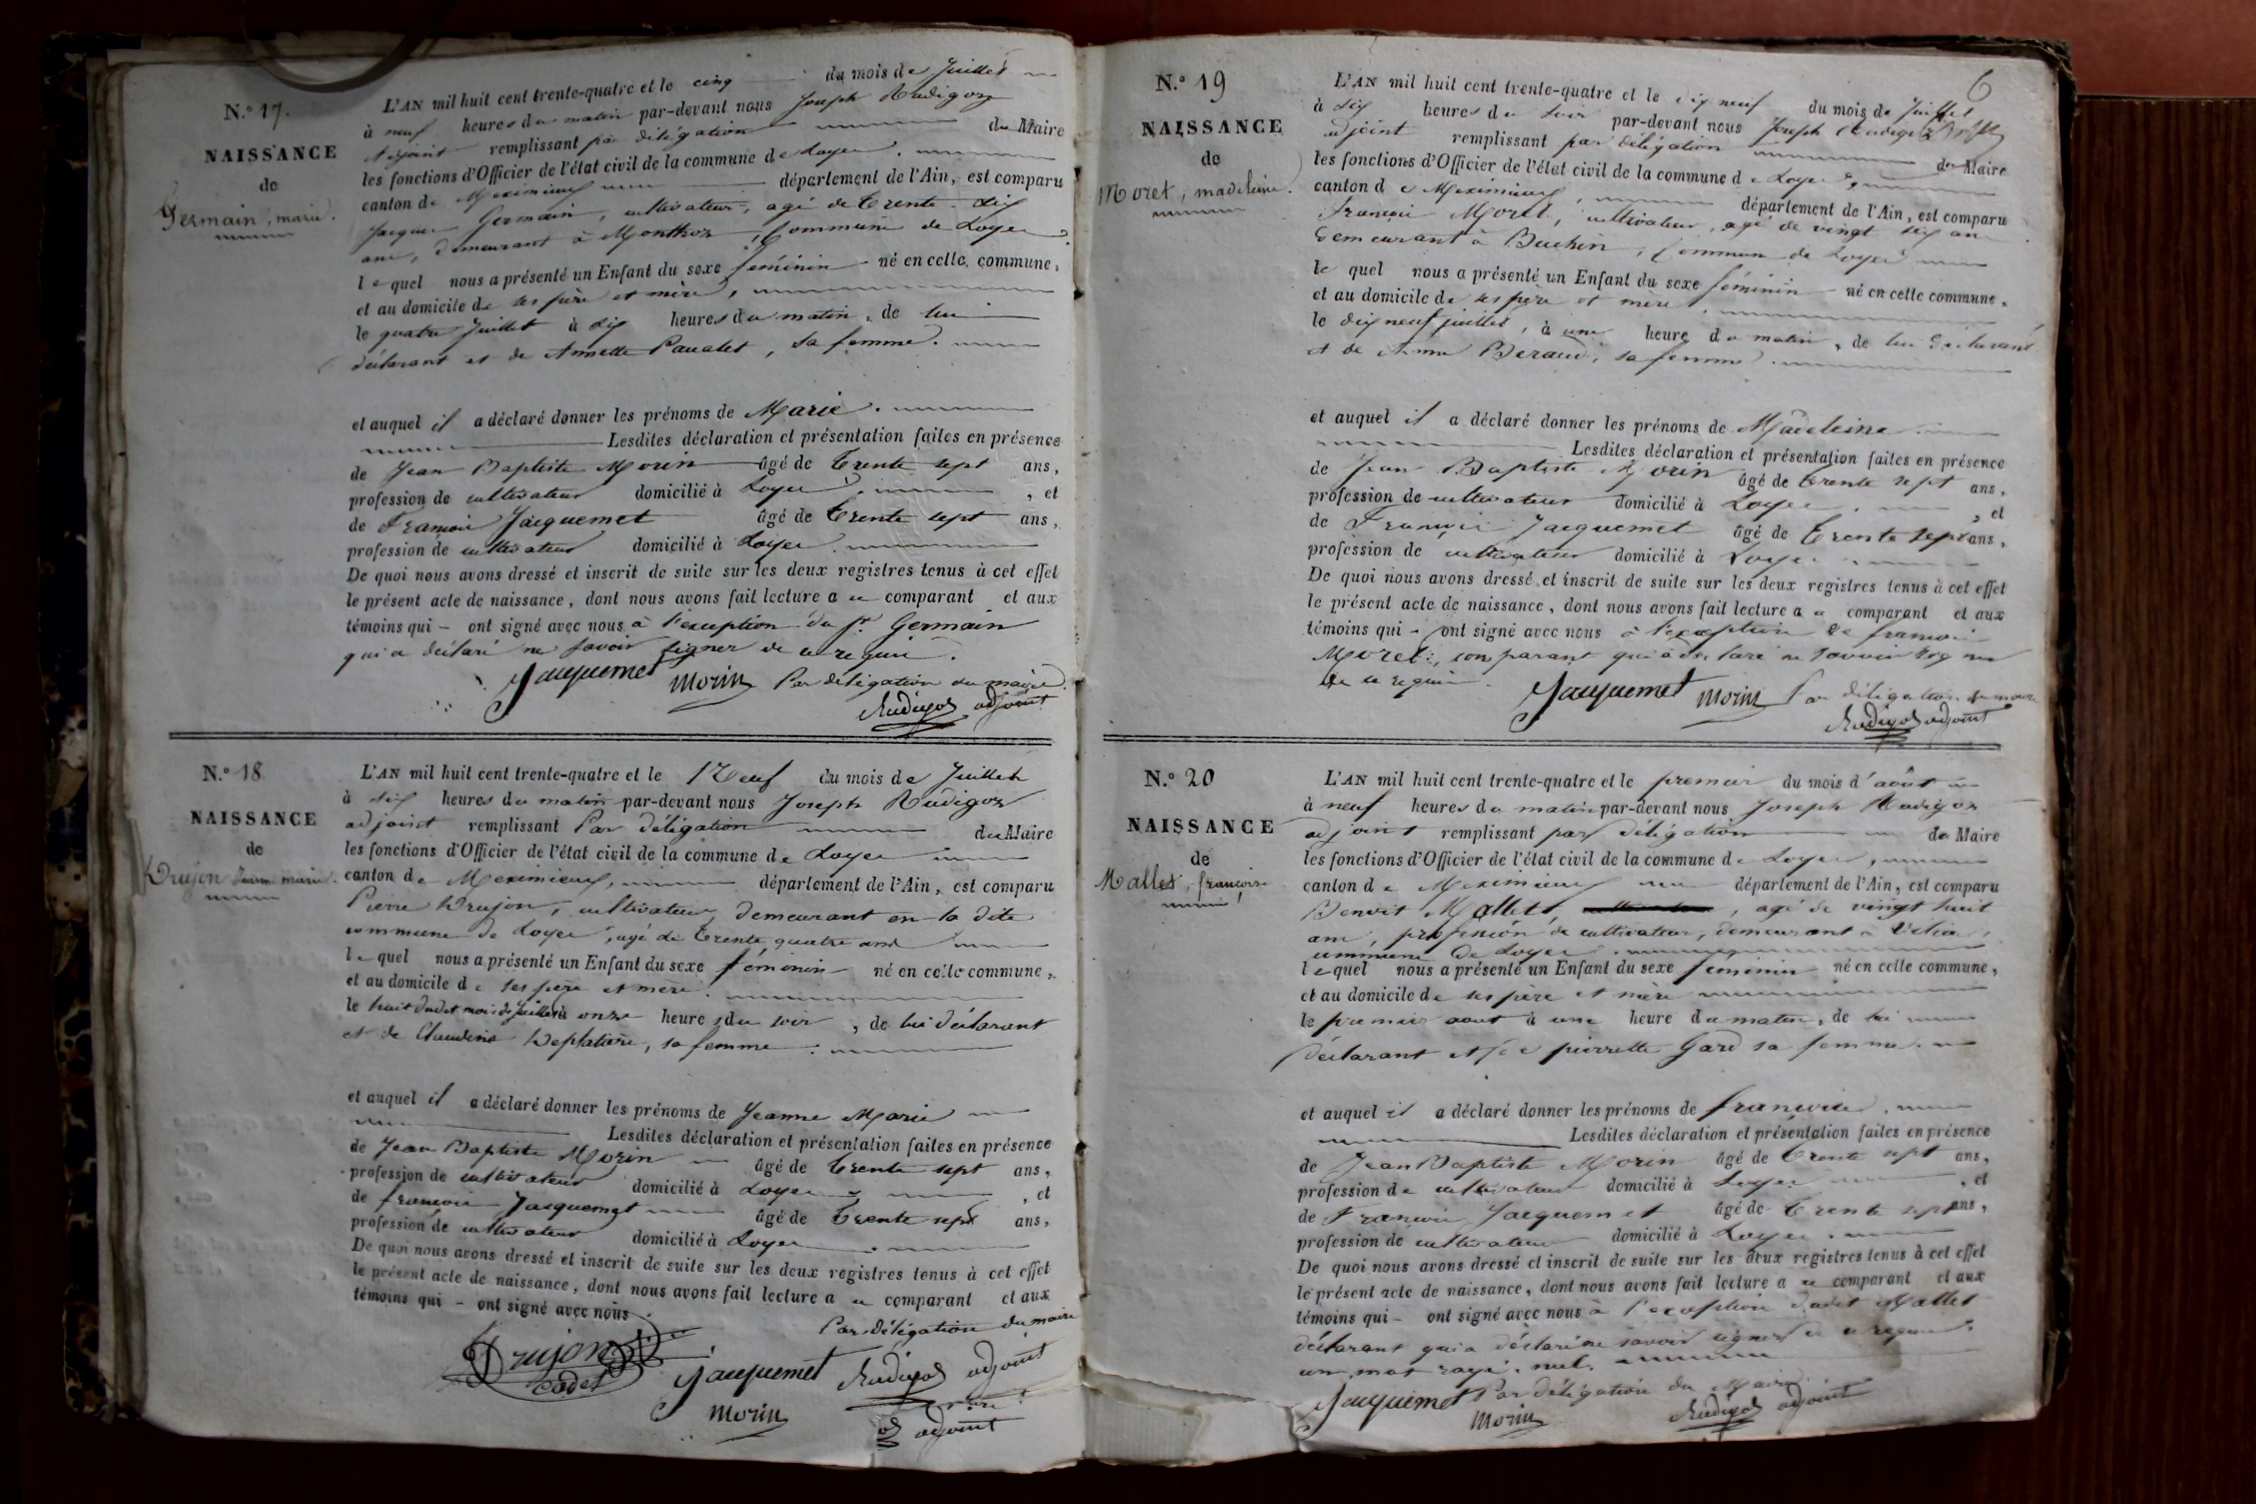 N.° 17.
NAISSANCE
de
Germain, marie.
L'AN mil huit cent trente-quatre et le cinq du mois de Juillet
à neuf heures du matin par-devant nous Joseph Rudigoz
adjoint remplissant par délégation du Maire
les fonctions d'Officier de l'état civil de la commune de Loyes.
canton de Meximieux département de l'Ain, est comparu
Jacques Germain, cultivateur, agé de trente dix
ans, demeurant à Monthoz, Commune de Loyes.
lequel nous a présenté un Enfant du sexe féminin né en cette commune,
et au domicile de ses père et mère,
le quatre Juillet à dix heures du matin, de lui
déclarant et de Annette Paualet, sa femme.
et auquel il a déclaré donner les prénoms de Marie.
Lesdites déclaration et présentation faites en présence
de Jean Baptiste Morin âgé de trente sept ans,
profession de cultivateur domicilié à Loyes, et
de François Jacquemet âgé de trente sept ans,
profession de cultivateur domicilié à Loyes.
De quoi nous avons dressé et inscrit de suite sur les deux registres tenus à cet effet
le présent acte de naissance, dont nous avons fait lecture a ce comparant et aux
témoins qui - ont signé avec nous à l'exception du Sr Germain
qui a déclaré ne savoir signer de ce requis.
Jacquemet Morin Par délégation du maire
Rudigoz adjoint
N.° 18
NAISSANCE
de
Drujon Jeanne marie.
L'AN mil huit cent trente-quatre et le Neuf du mois de Juillet
à dix heures du matin par-devant nous Joseph Rudigoz
adjoint remplissant Par délégation du Maire
les fonctions d'Officier de l'état civil de la commune de Loyes
canton de Meximieux, département de l'Ain, est comparu
Pierre Drujon, cultivateur, demeurant en la dite
commune de Loyes, agé de trente quatre ans
lequel nous a présenté un Enfant du sexe féminin né en cette commune,
et au domicile de ses père et mère.
le huit dudit mois de Juillet à onze heures du soir, de lui déclarant
et de Claudine Deplatière, sa femme.
et auquel il a déclaré donner les prénoms de Jeanne Marie
Lesdites déclaration et présentation faites en présence
de Jean Baptiste Morin âgé de trente sept ans,
profession de cultivateur domicilié à Loyes, et
de françois Jacquemet âgé de trente sept ans,
profession de cultivateur domicilié à Loyes.
De quoi nous avons dressé et inscrit de suite sur les deux registres tenus à cet effet
le présent acte de naissance, dont nous avons fait lecture a ce comparant et aux
témoins qui - ont signé avec nous
Par délégation du maire
Drujon cadet Jacquemet Rudigoz adjoint
Morin
adjoint
6
N.° 19
NAISSANCE
de
Moret, madeleine.
L'AN mil huit cent trente-quatre et le dix neuf du mois de Juillet
à dix heures du soir par-devant nous Joseph Rudigoz
adjoint remplissant par délégation du Maire
les fonctions d'Officier de l'état civil de la commune de Loyes,
canton de Meximieux, département de l'Ain, est comparu
François Moret, cultivateur, agé de vingt six ans
demeurant à Buchin, Commune de Loyes
lequel nous a présenté un Enfant du sexe féminin né en cette commune,
et au domicile de ses père et mère.
le dix neuf juillet, à une heure du matin, de lui déclarant
et de Anne Beraud, sa femme.
et auquel il a déclaré donner les prénoms de Madeleine
Lesdites déclaration et présentation faites en présence
de Jean Baptiste Morin âgé de trente sept ans,
profession de cultivateur domicilié à Loyes, et
de François Jacquemet âgé de trente sept ans,
profession de cultivateur domicilié à Loyes
De quoi nous avons dressé et inscrit de suite sur les deux registres tenus à cet effet
le présent acte de naissance, dont nous avons fait lecture a ce comparant et aux
témoins qui - ont signé avec nous à l'exception de françois
Moret, comparant qui a déclaré ne savoir signer
de ce requis.
Jacquemet Morin Par délégation du maire
Rudigoz adjoint
N.° 20
NAISSANCE
de
Mallet, françoise
L'AN mil huit cent trente-quatre et le premier du mois d'août
à neuf heures du matin par-devant nous Joseph Rudigoz
adjoint remplissant par délégation du Maire
les fonctions d'Officier de l'état civil de la commune de Loyes,
canton de Meximieux département de l'Ain, est comparu
Benoit Mallet, agé de vingt huit
ans, profession de cultivateur, demeurant à
commune de Loyes.
lequel nous a présenté un Enfant du sexe féminin né en cette commune,
et au domicile de ses père et mère
le premier aout à une heure du matin, de lui
déclarant et de pierrette Gard sa femme.
et auquel il a déclaré donner les prénoms de françoise.
Lesdites déclaration et présentation faites en présence
de Jean Baptiste Morin âgé de trente sept ans,
profession de cultivateur domicilié à Loyes, et
de François Jacquemet âgé de trente sept ans,
profession de cultivateur domicilié à Loyes.
De quoi nous avons dressé et inscrit de suite sur les deux registres tenus à cet effet
le présent acte de naissance, dont nous avons fait lecture a ce comparant et aux
témoins qui - ont signé avec nous à l'exception dudit Mallet
déclarant qui a déclaré ne savoir signer de ce requis.
un mot rayé nul.
Jacquemet Par délégation du Maire
Morin Rudigoz adjoint